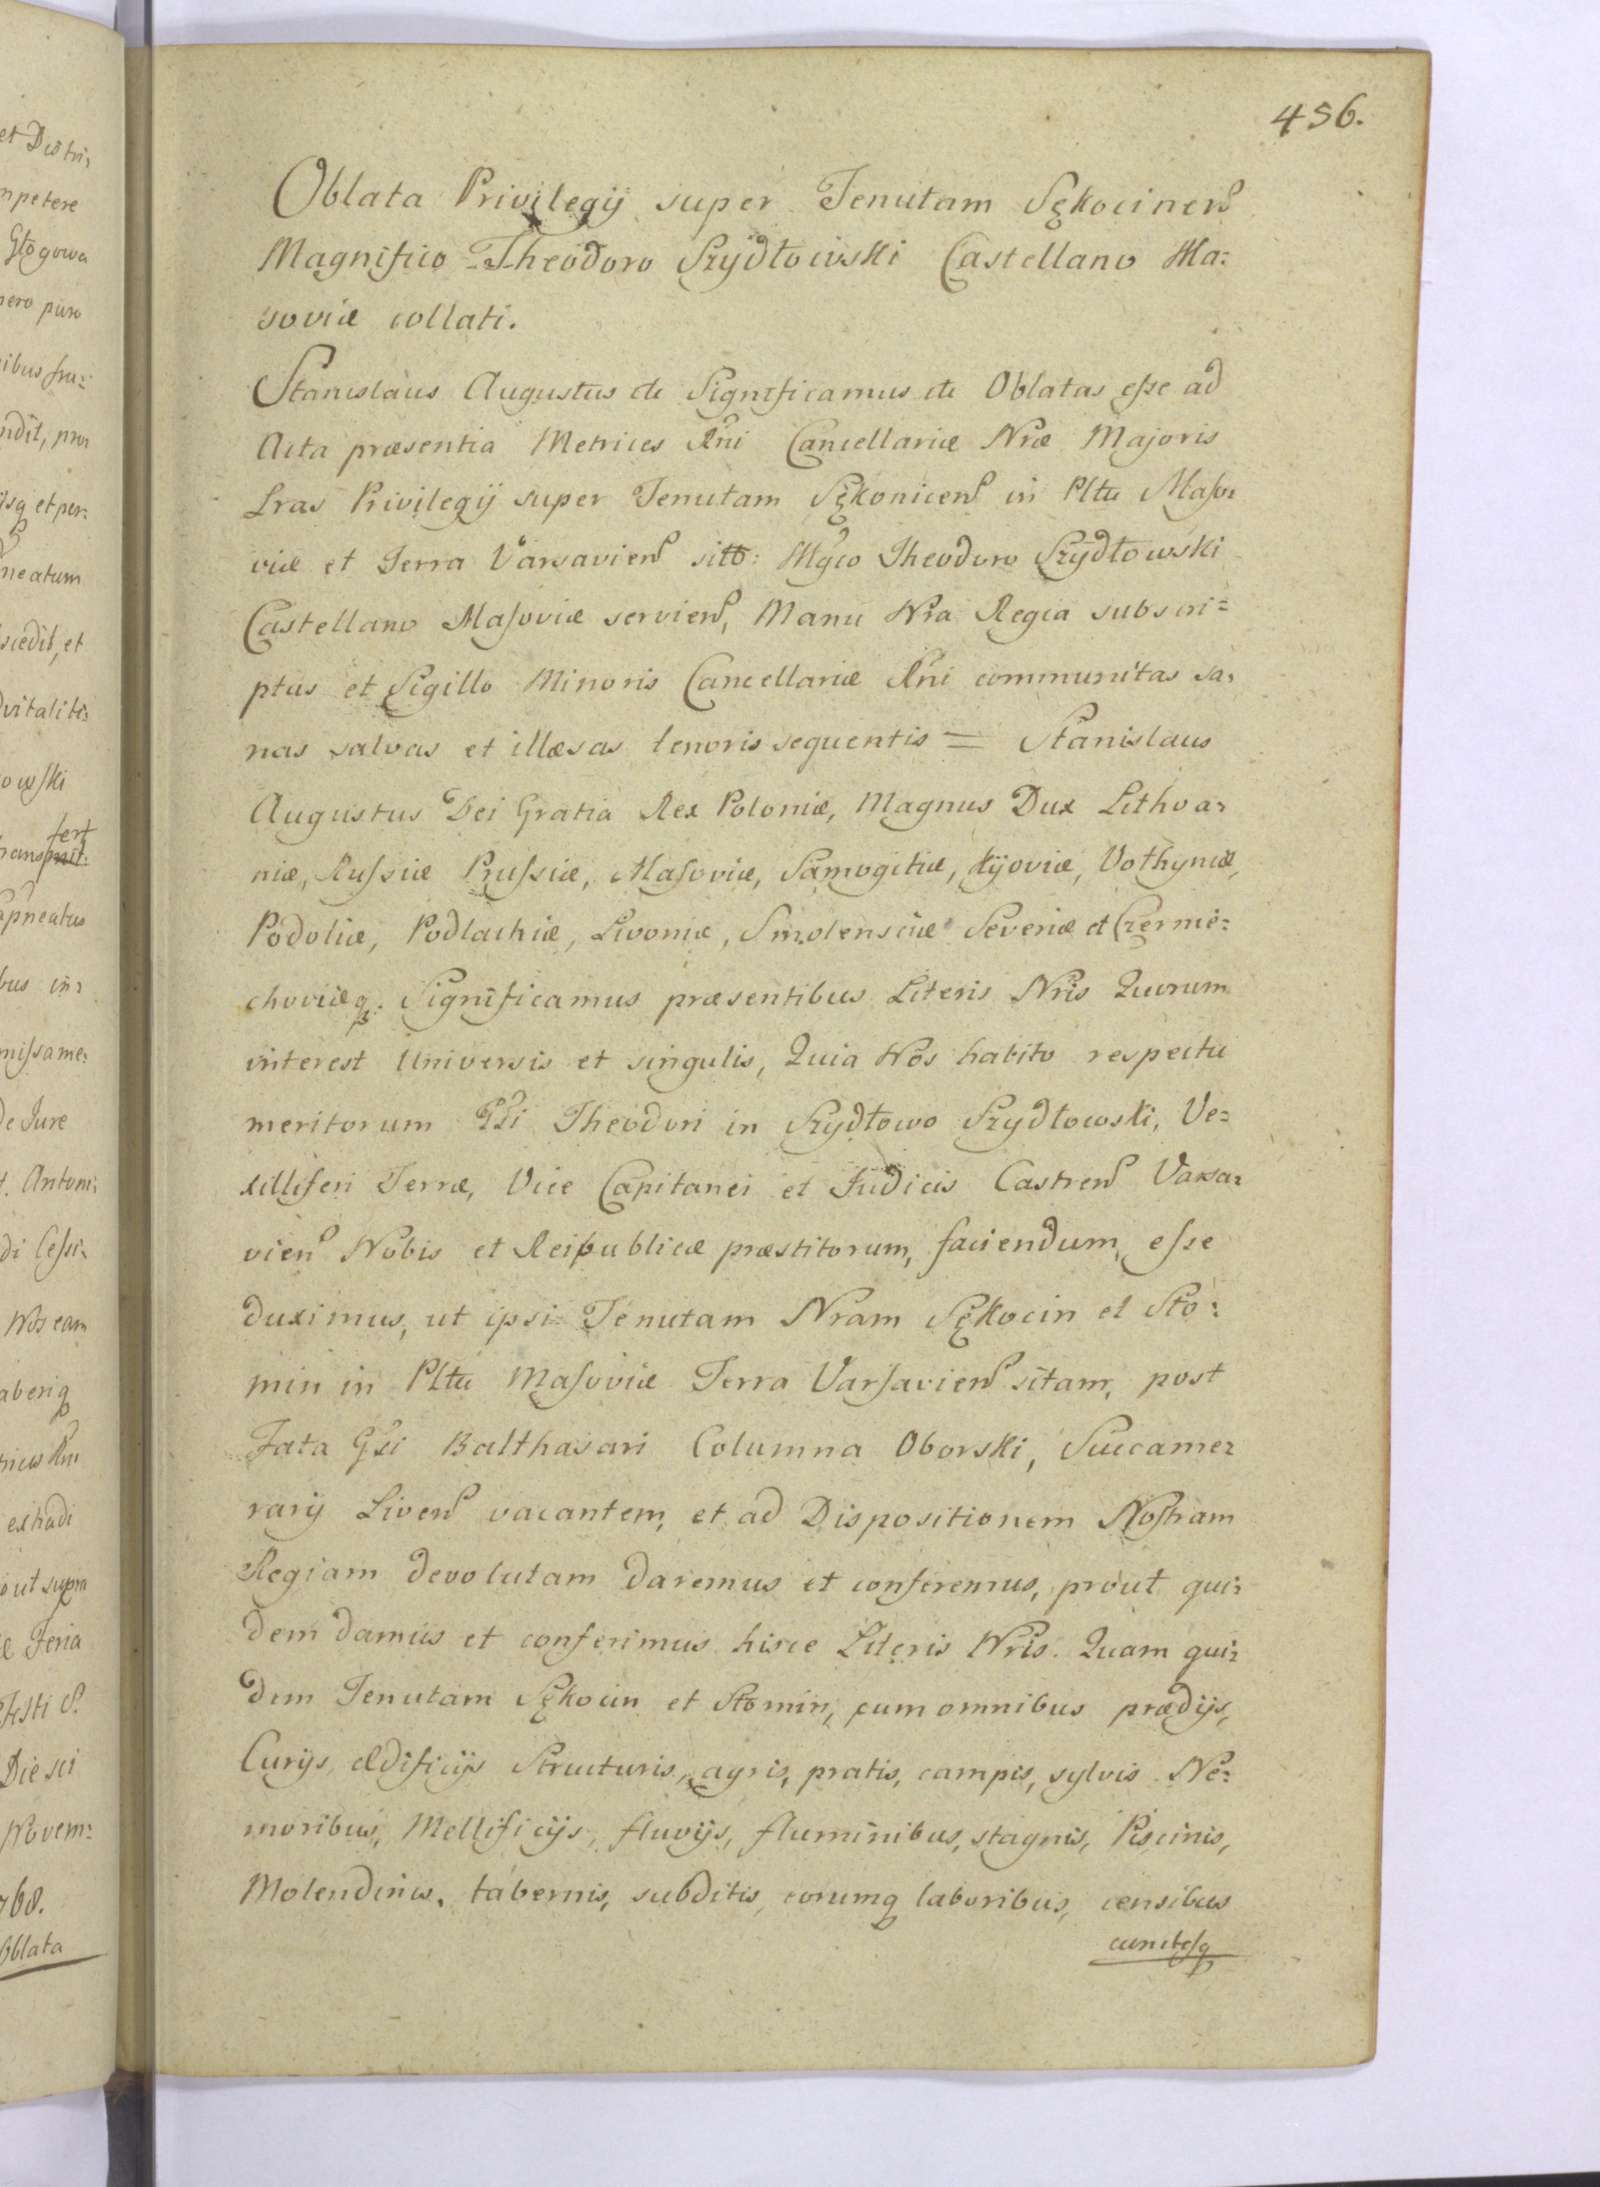 456.
Oblata Privilegij super Tenutam Sękocinen
Magnifico Theodoro Szydłowski Castellano Ma=
soviæ collati.
Stanislaus Augustus &c Significamus &c Oblatas esse ad
Acta præsentia Metrices Rni Cancellariæ Nræ Majoris
Lras Privilegij super Tenutam Sękonicen in Pltu Maso=
viæ et Terra Varsavien sitō: Mgco Theodoro Szydłowski
Castellano Masoviæ servien, Manu Nra Regia subscri=
ptas et Sigillo Minoris Cancellariæ Rni communitas sa=
nas salvas et illæsas tenoris sequentis = Stanislaus
Augustus Dei Gratia Rex Poloniæ, Magnus Dux Lithva=
niæ, Russiæ Prussiæ, Masoviæ, Samogitiæ, Kijoviæ, Vołhyniæ,
Podoliæ, Podlachiæ, Livoniæ, Smolensciæ Severiæ et Czernie=
choviæq. Significamus præsentibus Literis Nris Quorum
interest Universis et singulis, Quia Nos habito respectu
meritorum Gsi Theodori in Szydłowo Szydłowski, Ve=
xilliferi Terræ, Vice Capitanei et Judicis Castren Varsa=
vien Nobis et Reipublicæ præstitorum, faciendum esse
duximus, ut ipsi Tenutam Nram Sękocin et Sło=
min in Pltu Masoviæ Terra Varsavien sitam, post
Fata Gsi Balthasari Columna Oborski, Succame=
rarij Liven vacantem, et ad Dispositionem Nostram
Regiam devolutam daremus et conferemus, prout qui=
dem damus et conferimus hisce Literis Nris. Quam qui=
dem Tenutam Sękocin et Słomin, cum omnibus prædijs,
Curijs, ædificijs Structuris, agris, pratis, campis, sylvis Ne=
moribus, Mellificijs, fluvijs, fluminibus, stagnis, Piscinis,
Molendinis, tabernis, subditis, eorumq laboribus, censibus
cunctisq